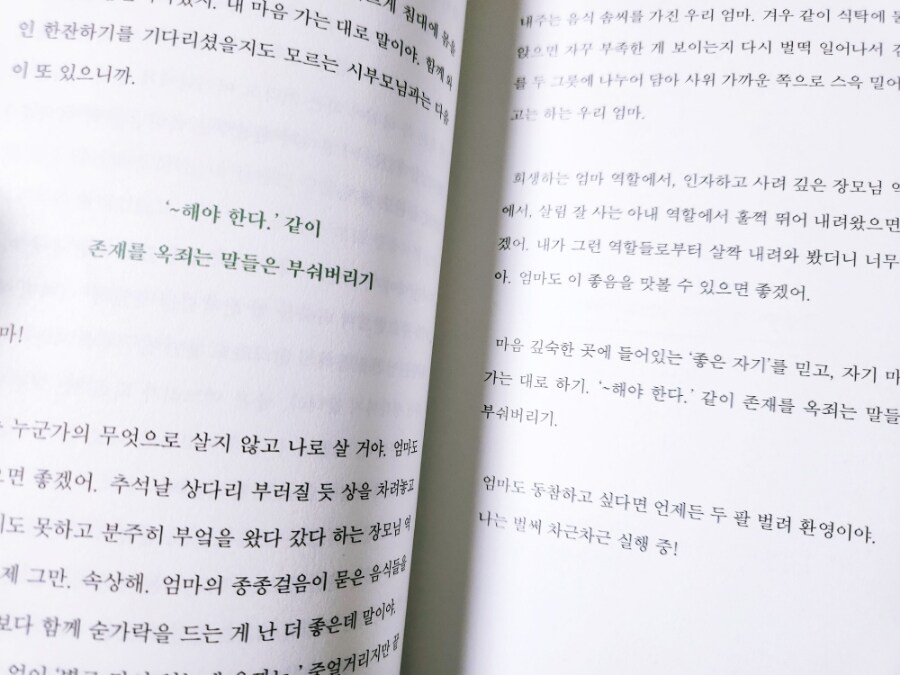 침대에 몸을
내 마음 가는 대로 말이야. 함께 와
인 한잔하기를 기다리셨을지도 모르는 시부모님과는 다음
이 또 있으니까.
‘~해야 한다.’ 같이
존재를 옥죄는 말들은 부숴버리기
마!
누군가의 무엇으로 살지 않고 나로 살 거야. 엄마도
으면 좋겠어. 추석날 상다리 부러질 듯 상을 차려놓고
지도 못하고 분주히 부엌을 왔다 갔다 하는 장모님 역
제 그만. 속상해. 엄마의 종종걸음이 묻은 음식들을
보다 함께 숟가락을 드는 게 난 더 좋은데 말이야.
중얼거리지만 끝
내주는 음식 솜씨를 가진 우리 엄마. 겨우 같이 식탁에
앉으면 자꾸 부족한 게 보이는지 다시 벌떡 일어나서
를 두 그릇에 나누어 담아 사위 가까운 쪽으로 스윽 밀어
고는 하는 우리 엄마.
희생하는 엄마 역할에서, 인자하고 사려 깊은 장모님 역
에서, 살림 잘 사는 아내 역할에서 훌쩍 뛰어 내려왔으면
겠어. 내가 그런 역할들로부터 살짝 내려와 봤더니 너무
아. 엄마도 이 좋음을 맛볼 수 있으면 좋겠어.
마음 깊숙한 곳에 들어있는 ‘좋은 자기’를 믿고, 자기 마
가는 대로 하기. ‘~해야 한다.’ 같이 존재를 옥죄는 말들
부숴버리기.
엄마도 동참하고 싶다면 언제든 두 팔 벌려 환영이야.
나는 벌써 차근차근 실행 중!